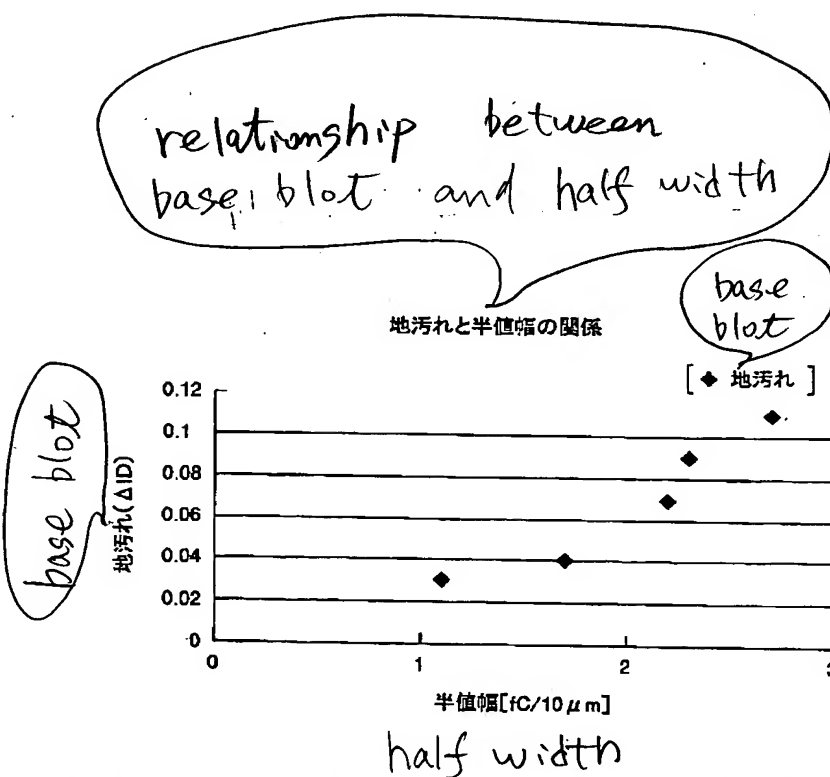 relationship between
base blot and half width
地汚れと半値幅の関係
base
blot
[◆ 地汚れ]
base blot
地汚れ(ΔID)
0.12
0.1
0.08
0.06
0.04
0.02
0
0 1 2 3
半値幅[fC/10μm]
half width